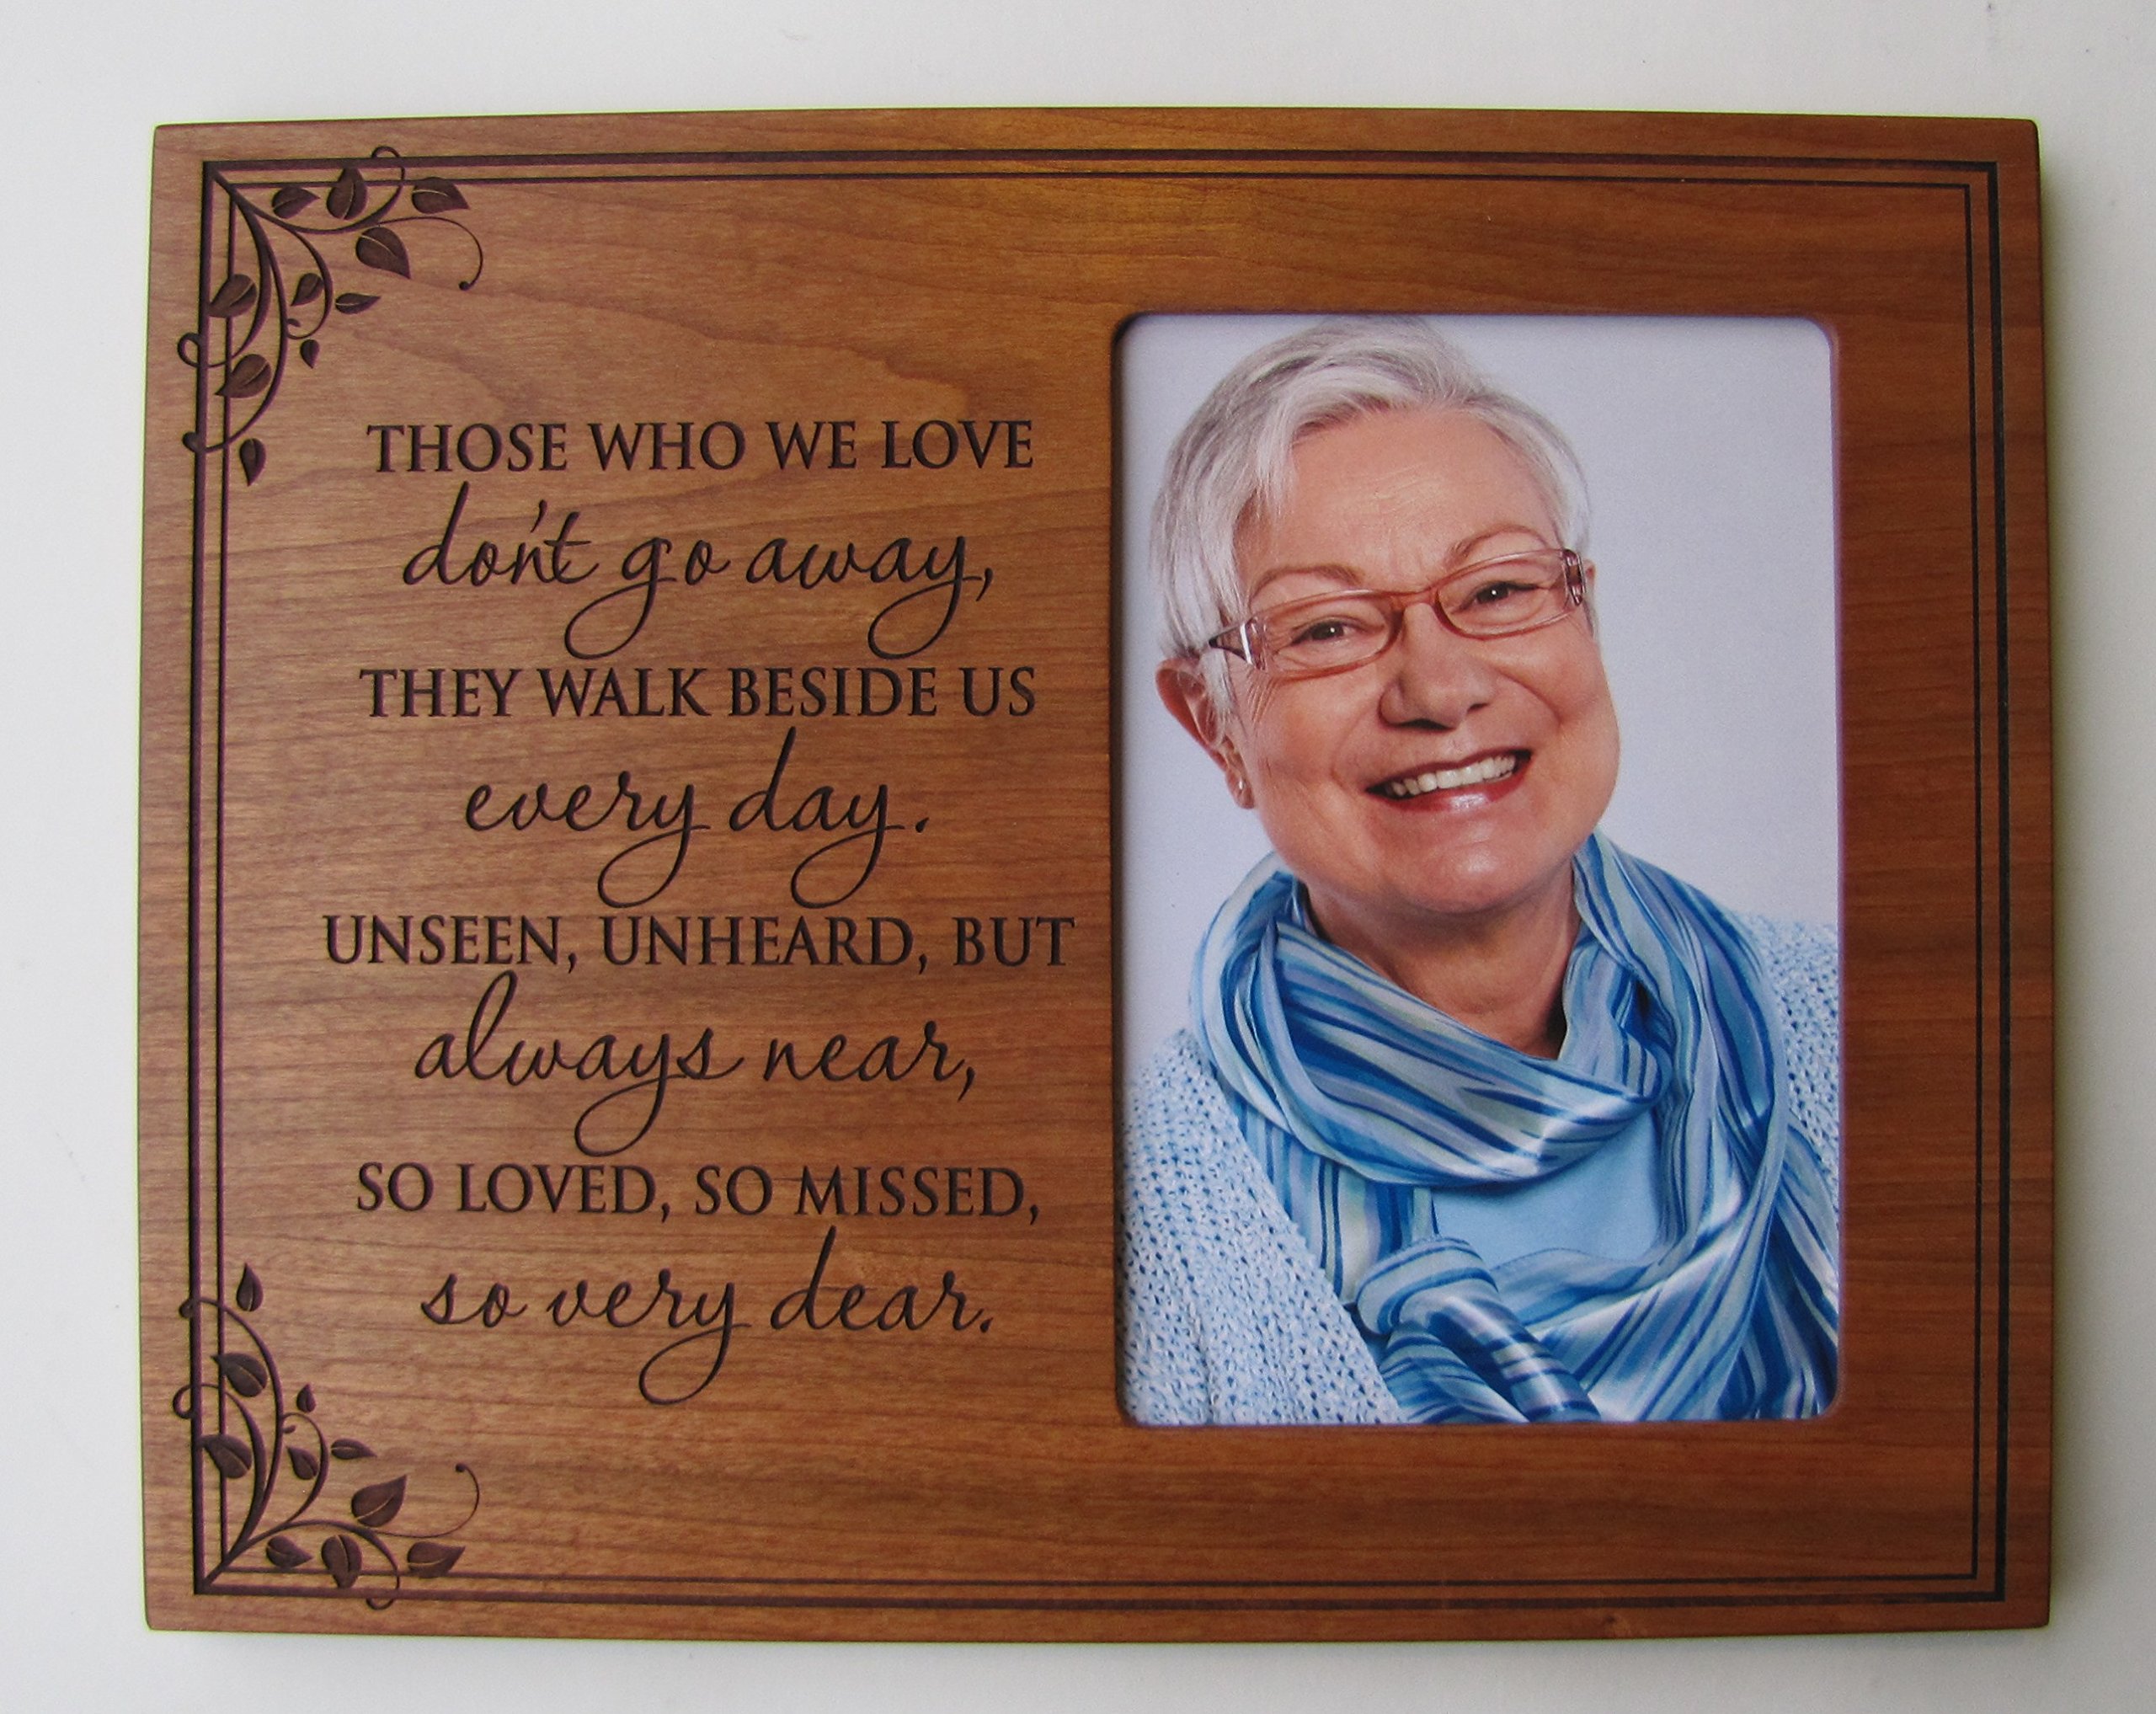 THOSE WHO WE LOVE
don't go away,
THEY WALK BESIDE US
every day.
UNSEEN, UNHEARD, BUT
always near,
SO LOVED, SO MISSED,
so very dear.